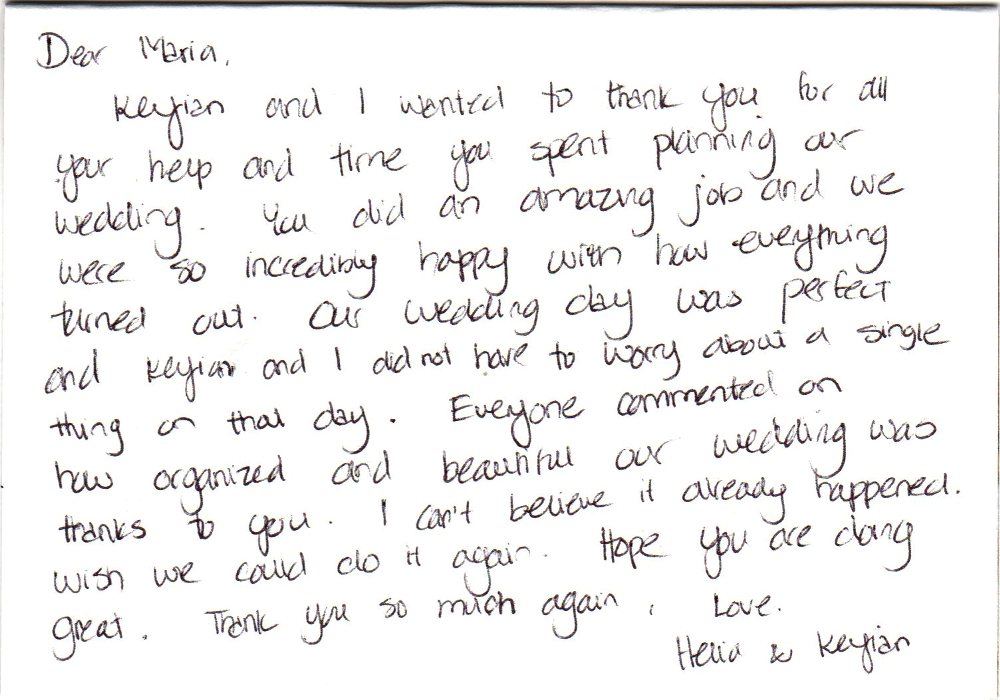 Dear Maria,
Keyian and I wanted to thank you for all
your help and time you spent planning our
wedding. You did an amazing job and we
were so incredibly happy with how everything
turned out. Our wedding day was perfect
and Keyian and I did not have to worry about a single
thing on that day. Everyone commented on
how organized and beautiful our wedding was
thanks to you. I can't believe it already happened.
wish we could do it again. Hope you are doing
great. Thank you so much again, Love.
& Keyian